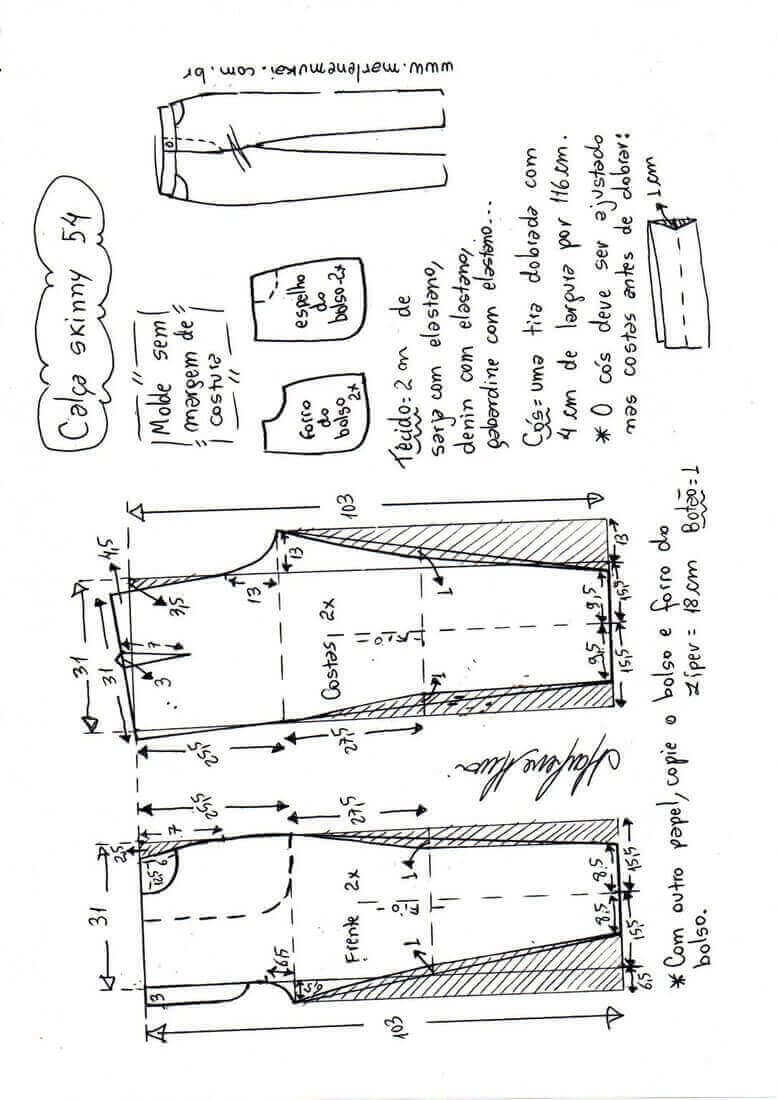 Calça skinny 54
www.marlenemukai.com.br
Molde sem
margem de
costura
forro
do
bolso
2x
espelho
do
bolso-2x
Tecido=2 m de
sarja com elastano,
denim com elastano,
gabardine com elastano...
Cós=uma tira dobrada com
4 cm de largura por 116cm.
* O cós deve ser ajustado
nas costas antes de dobrar:
1 cm
103
31
4,5
31
3,5
7
3
13
13
Costas, 2x
Fio
25,5
27,5
1
1
9,5
9,5
15,5
15,5
13
25,5
27,5
31
2,5
7
3
6,5
6,5
Frente, 2x
Fio
1
1
8,5
8,5
15,5
15,5
6,5
103
* Com outro papel, copie o bolso e forro do
bolso.
Zíper = 18cm Botão=1